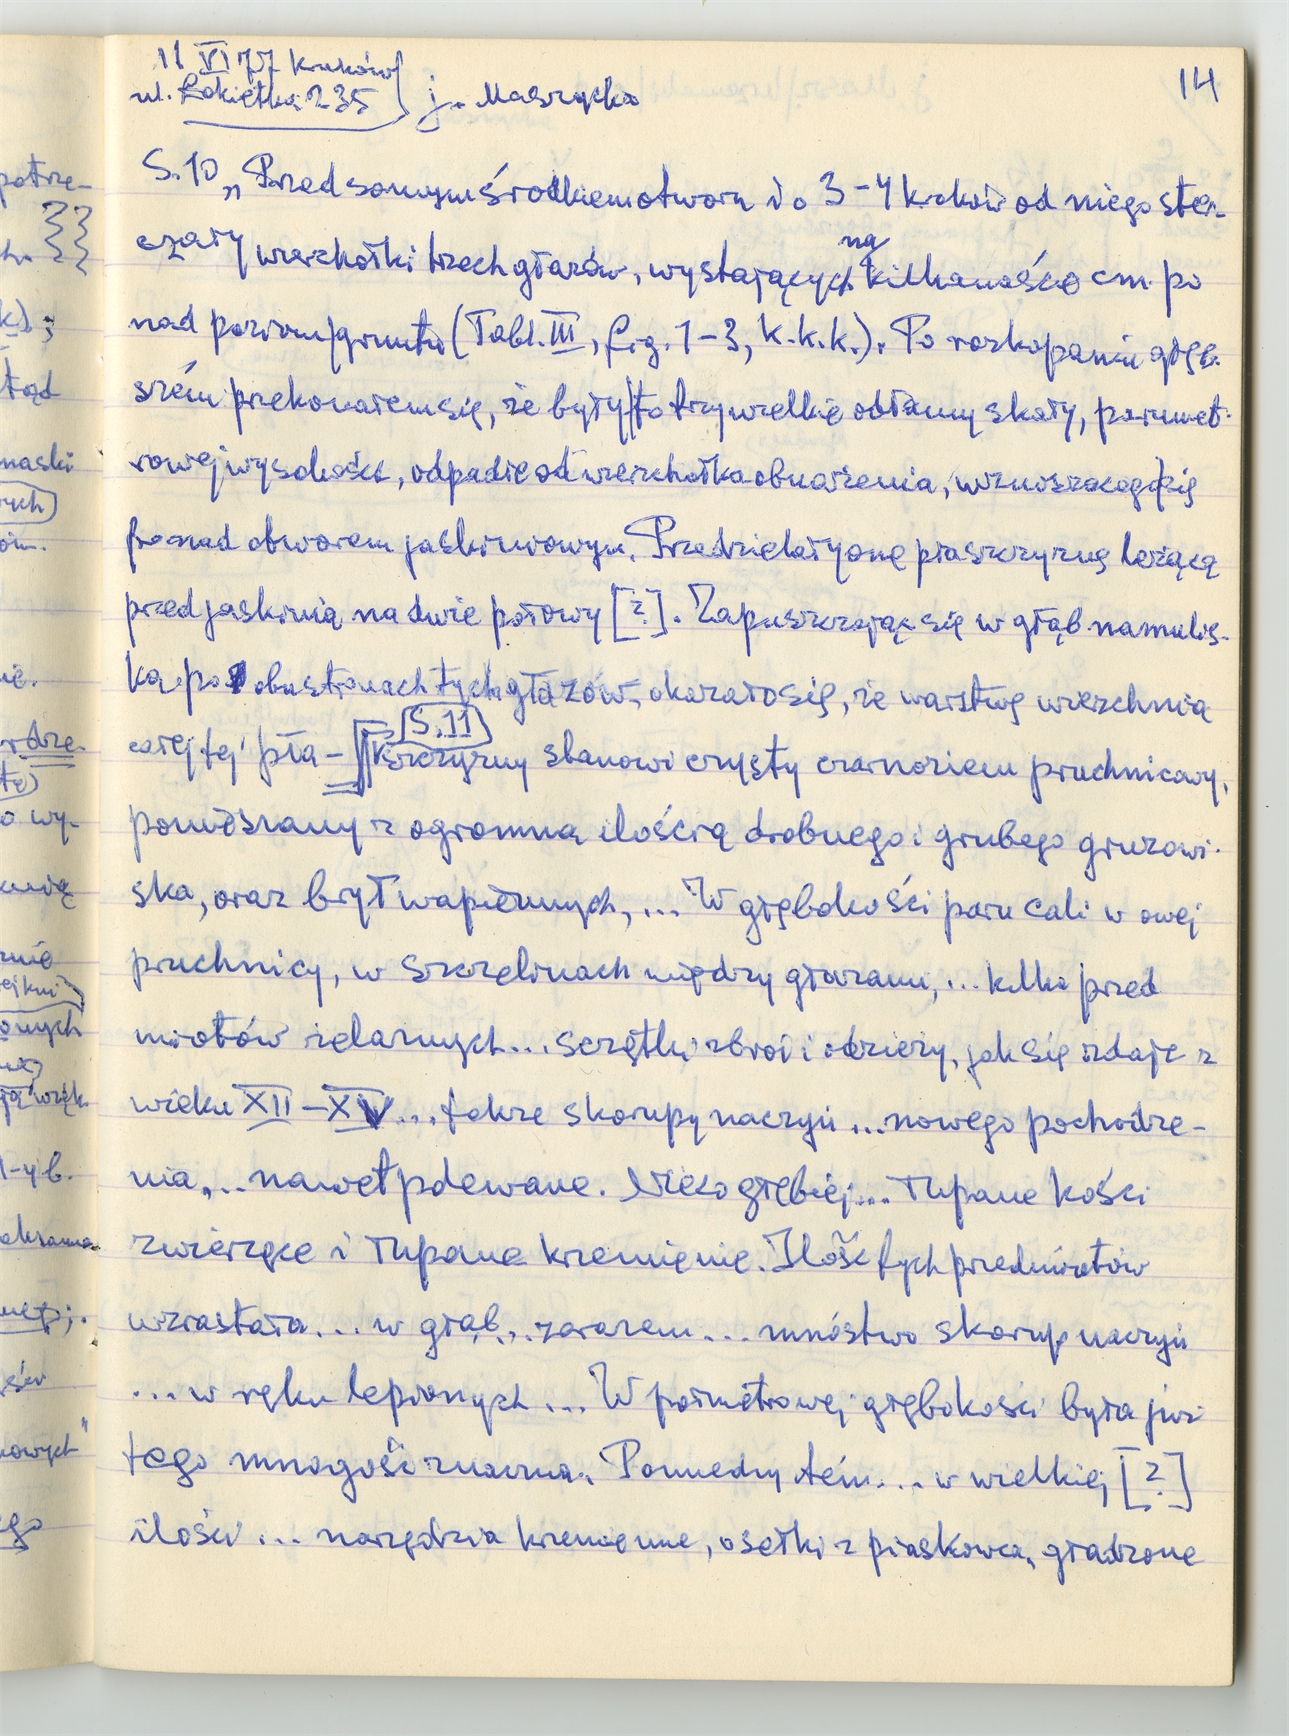 14
11 VI 77 Kraków
ul. Łokietka 235 j. Maszycka
S.10 „Przed samym środkiem otworu i o 3-4 kroków od niego ster-
czały wierzchołki trzech głazów, wystających na kilkanaście cm po
nad poziom gruntu (Tabl. III, fig. 1-3, k.k.k.). Po rozkopaniu głęb-
szém przekonałem się, że były to trzy wielkie odłamy skały, parumet-
rowej wysokości, odpadłe od wierzchołka obnażenia, wznoszącego się
ponad otworem jaskiniowym. Przedzielały one płaszczyznę leżącą
przed jaskinią na dwie połowy [?]. Zapuszczając się w głąb namulis-
ka po obu stronach tych głazów, okazało się, że warstwę wierzchnią
całej tej pła- S.11 szczyzny stanowi czysty czarnoziem pruchnicowy,
pomieszany z ogromną ilością drobnego i grubego gruzowi-
ska, oraz brył wapiennych, ... W głębokości paru cali w owej
pruchnicy, w szczelinach między głazami, ... kilka przed
miotów żelaznych... szczątki zbroi i odzieży, jak się zdaje z
wieku XII-XV... także skorupy naczyń ... nowego pochodze-
nia, ... nawet polewane. Nieco głębiej... łupane kości
zwierzęce i łupane krzemienie. Ilość tych przedmiotów
wzrastała ... w głąb, .. zarazem ... mnóstwo skorup naczyń
... w ręku lepionych ... W półmetrowej głębokości była już
tego mnogość znaczna. Pomiędzy tém ... w wielkiej [?]
ilości ... narzędzia krzemienne, osełki z piaskowca, gładzone
potrze-
ch.
k);
tąd
maski
rych
oim.
ie.
rdze-
o wy-
omych
1-4 b.
kowych"
ego